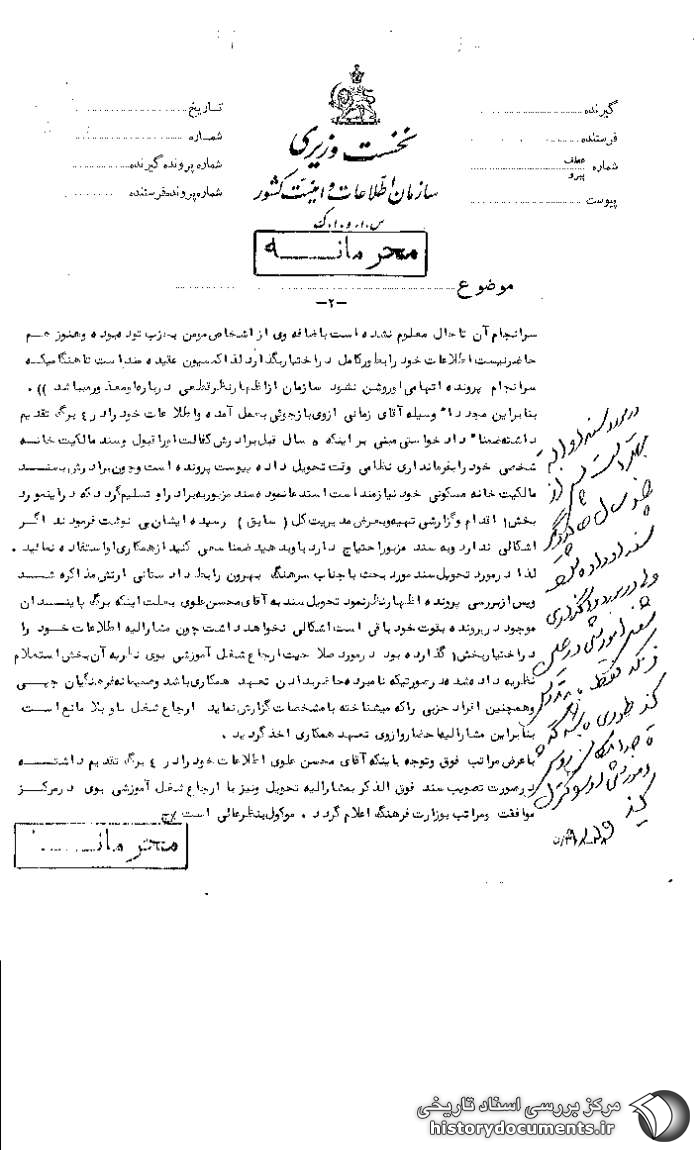 گیرنده
فرستنده
شماره عطف پیرو
پیوست
نخست وزیری
سازمان اطلاعات و امنیت کشور
تاریخ
شماره
شماره پرونده گیرنده
شماره پرونده فرستنده
محرمانه
موضوع
-۲-
سرانجام آن تا حال معلوم نشده است باضافه وی از اشخاص مومن بحزب توده بوده و هنوز هم
حاضر نیست اطلاعات خود را بطور کامل در اختیار بگذارد لذا کمسیون عقیده مند است تا هنگامیکه
سرانجام پرونده اتهامی او روشن نشود سازمان از اظهار نظر قطعی درباره او معذور میباشد )) .
بنابراین مجددا" وسیله آقای زمانی از وی بازجوئی بعمل آمده و اطلاعات خود را در ٤ برگ تقدیم
داشته ضمنا" درخواستی مبنی بر اینکه ٥ سال قبل برادرش کفالت او را قبول و سند مالکیت خانه
شخصی خود را بفرمانداری نظامی وقت تحویل داده پیوست پرونده است و چون برادرش بسند
مالکیت خانه مسکونی خود نیازمند است استدعا نموده سند مزبور به برادر او تسلیم گردد که در اینمورد
بخش ۱ اقدام و گزارشی تهیه و بعرض مدیریت کل ( سابق ) رسیده ایشان پی نوشت فرمودند اگر
اشکالی ندارد و به سند مزبور احتیاج دارد باو بدهید ضمنا سعی کنید از همکاری او استفاده نمائید .
لذا در مورد تحویل سند مورد بحث با جناب سرهنگ بهرون رابط دادستانی ارتش مذاکره شد
و پس از بررسی پرونده اظهار نظر نمود تحویل سند به آقای محسن علوی بعلت اینکه برگ
موجود در پرونده بقوت خود باقی است اشکالی نخواهد داشت چون مشارالیه اطلاعات خود را
در اختیار بخش ۱ گذارده بود در مورد صلاحیت ارجاع شغل آموزشی بوی بنا به آن بخش استعلام
نظریه داده شد در صورتیکه نامبرده حاضر بدادن تعهد همکاری باشد و صمیمانه فرهنگیان چپی
و همچنین افراد حزبی را که میشناخته با مشخصات گزارش نماید ارجاع شغل باو بلا مانع است
بنابراین مشارالیه احضار و از وی تعهد همکاری اخذ گردید .
با عرض مراتب فوق و توجه باینکه آقای محسن علوی اطلاعات خود را در ٤ برگ تقدیم داشته
در صورت تصویب سند فوق الذکر بمشارالیه تحویل و نیز با ارجاع شغل آموزشی بوی در مرکز
موافقت و مراتب بوزارت فرهنگ اعلام گردد . موکول بنظر عالی است
در مورد سند او البته
پس از
چند سال
سند او داده شود
ولی در مورد واگذاری
شغل آموزشی در
فرهنگ فقط
کند طوری باشد که
کند
محرمانه
مرکز بررسی اسناد تاریخی
historydocuments.ir